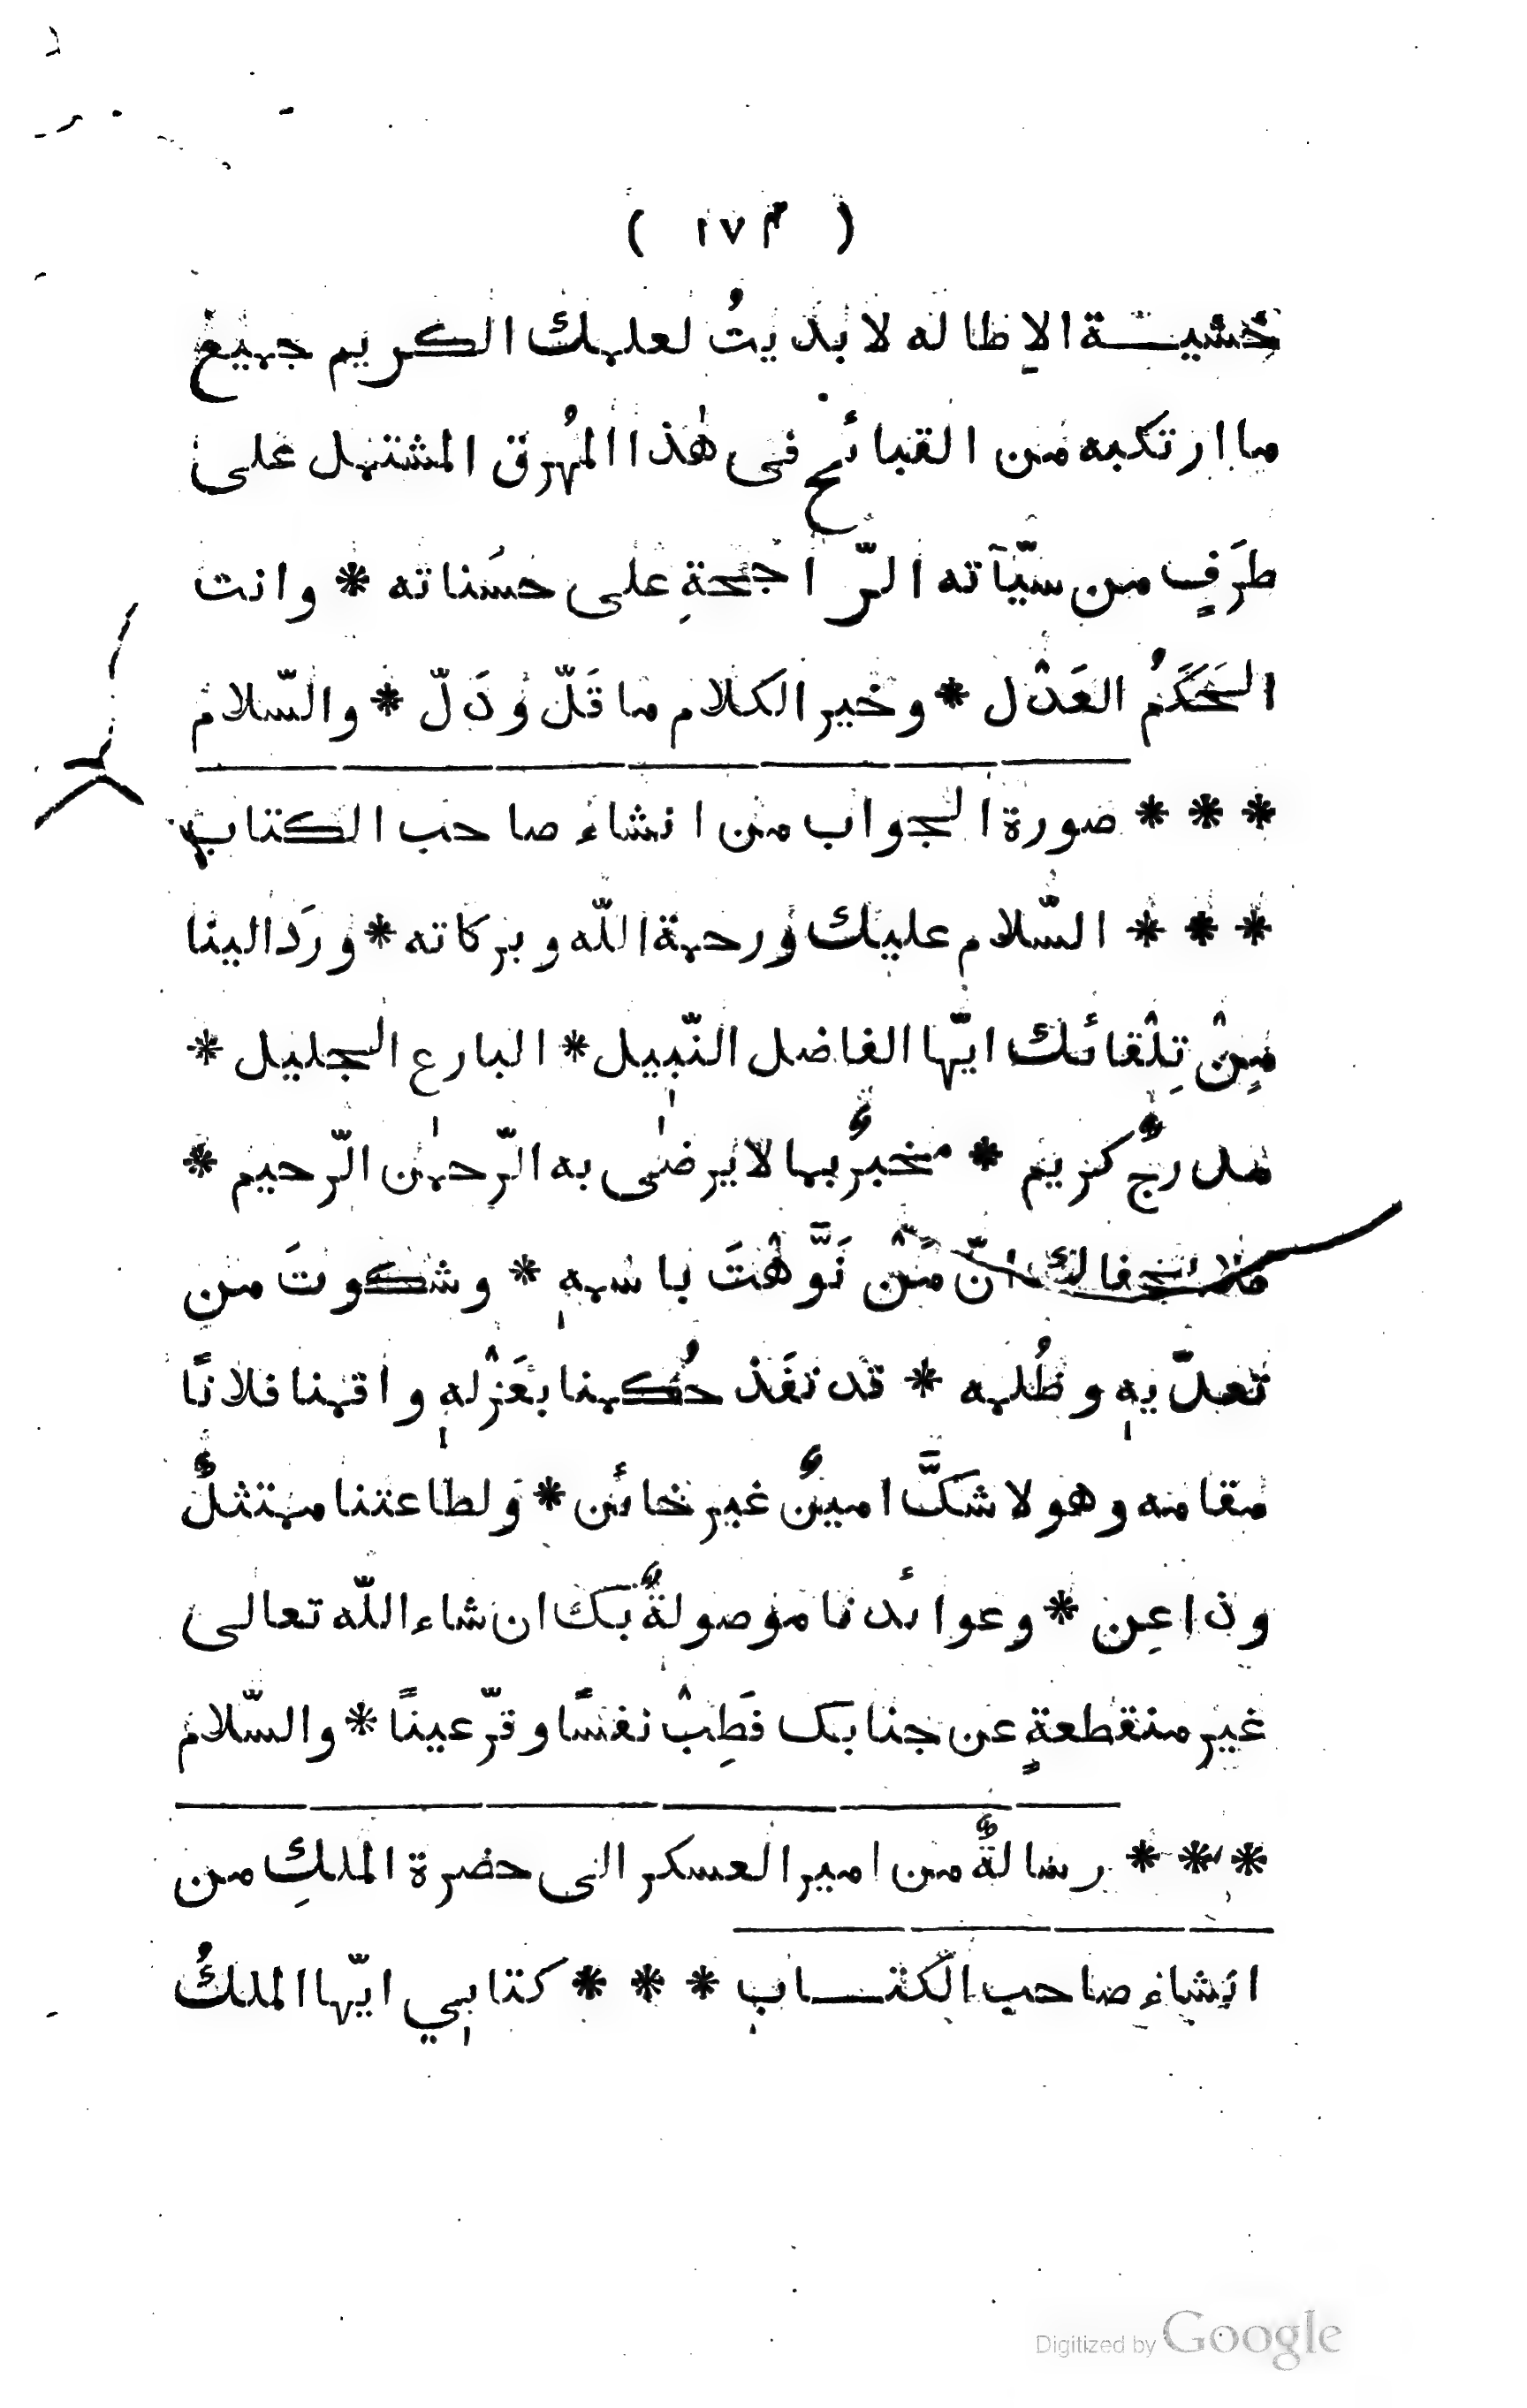 ( ١٧٣ )
خشيـــة الاِطاله لابديتُ لعلمك الكريم جميع
ما ارتكبه من القبائح فى هٰذا المُهرق المشتمل على
طرَفٍ من سيّآته الرّاجحةِ على حسَناته * وانت
الحَكَمُ العَدْل * وخير الكلام ما قَلّ ودَلّ * والسّلام
* * * صورة الجواب من انشاء صاحب الكتاب
* * * السّلام عليك ورحمة اللّه وبركاته * ورَد الينا
مِنْ تِلْقائك ايّها الفاضل النّبيل * البارع الجليل *
مدرجٌ كريم * مخبرٌ بما لا يرضٰى به الرّحمٰن الرّحيم *
انّ مَنْ نَوَّهْتَ باسمهٖ * وشكوتَ من
تعدّيهٖ وظُلمه * قد نفَذ حُكمنا بعَزْلهٖ واقمنا فلانًا
مقامه وهو لا شكَّ امينٌ غير خائن * ولطاعتنا ممتثلٌ
وذاعِن * وعوائدنا موصولةٌ بك ان شاء اللّه تعالى
غير منقطعةٍ عن جنابك فَطِبْ نفسًا وقرّ عينًا * والسّلام
* * * رسالةٌ من امير العسكر الى حضرة الملكِ من
انشاء صاحب الكتـــاب * * * كتابي ايّها الملكُ
Digitized by Google